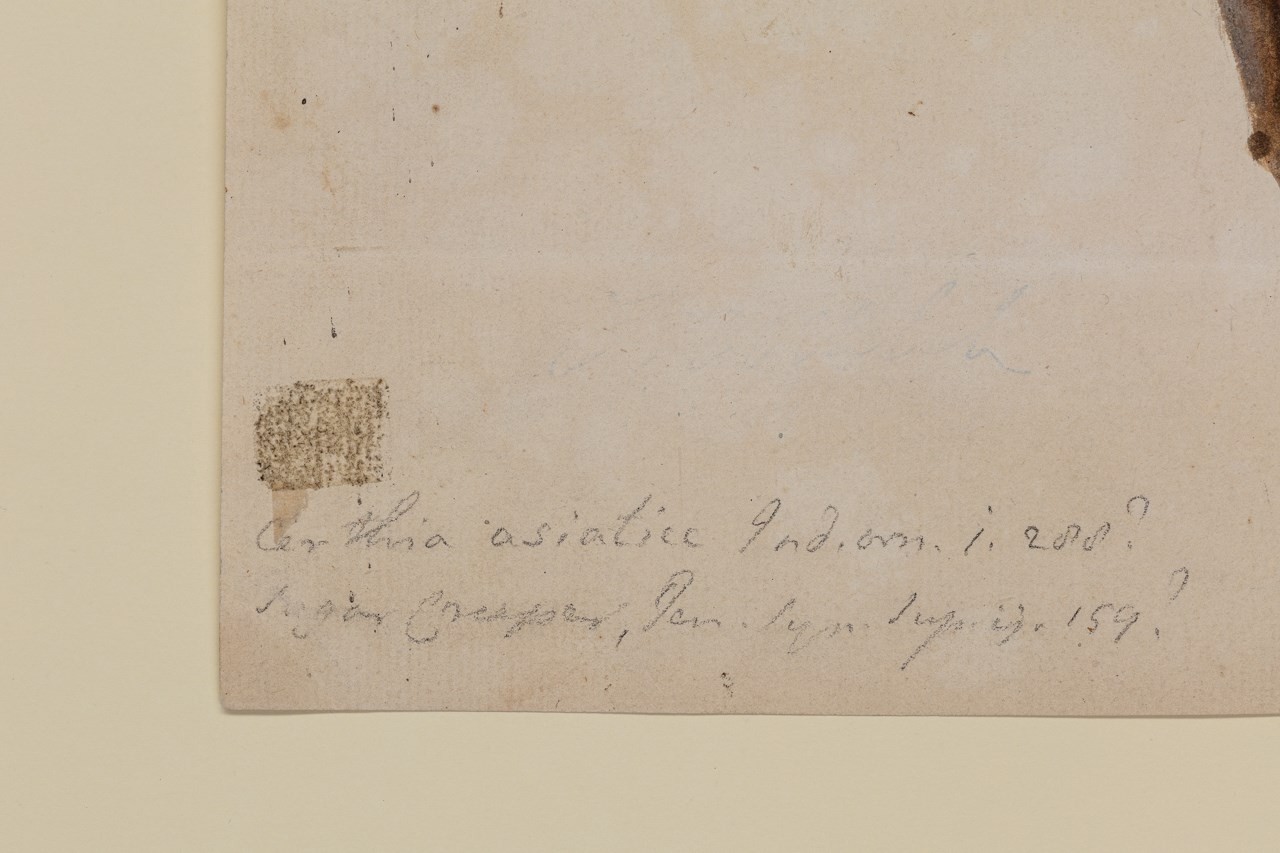 Certhia asiatica Ind. orn. i. 288?
Sugar Creeper, Syn. Sup. ij. 159?